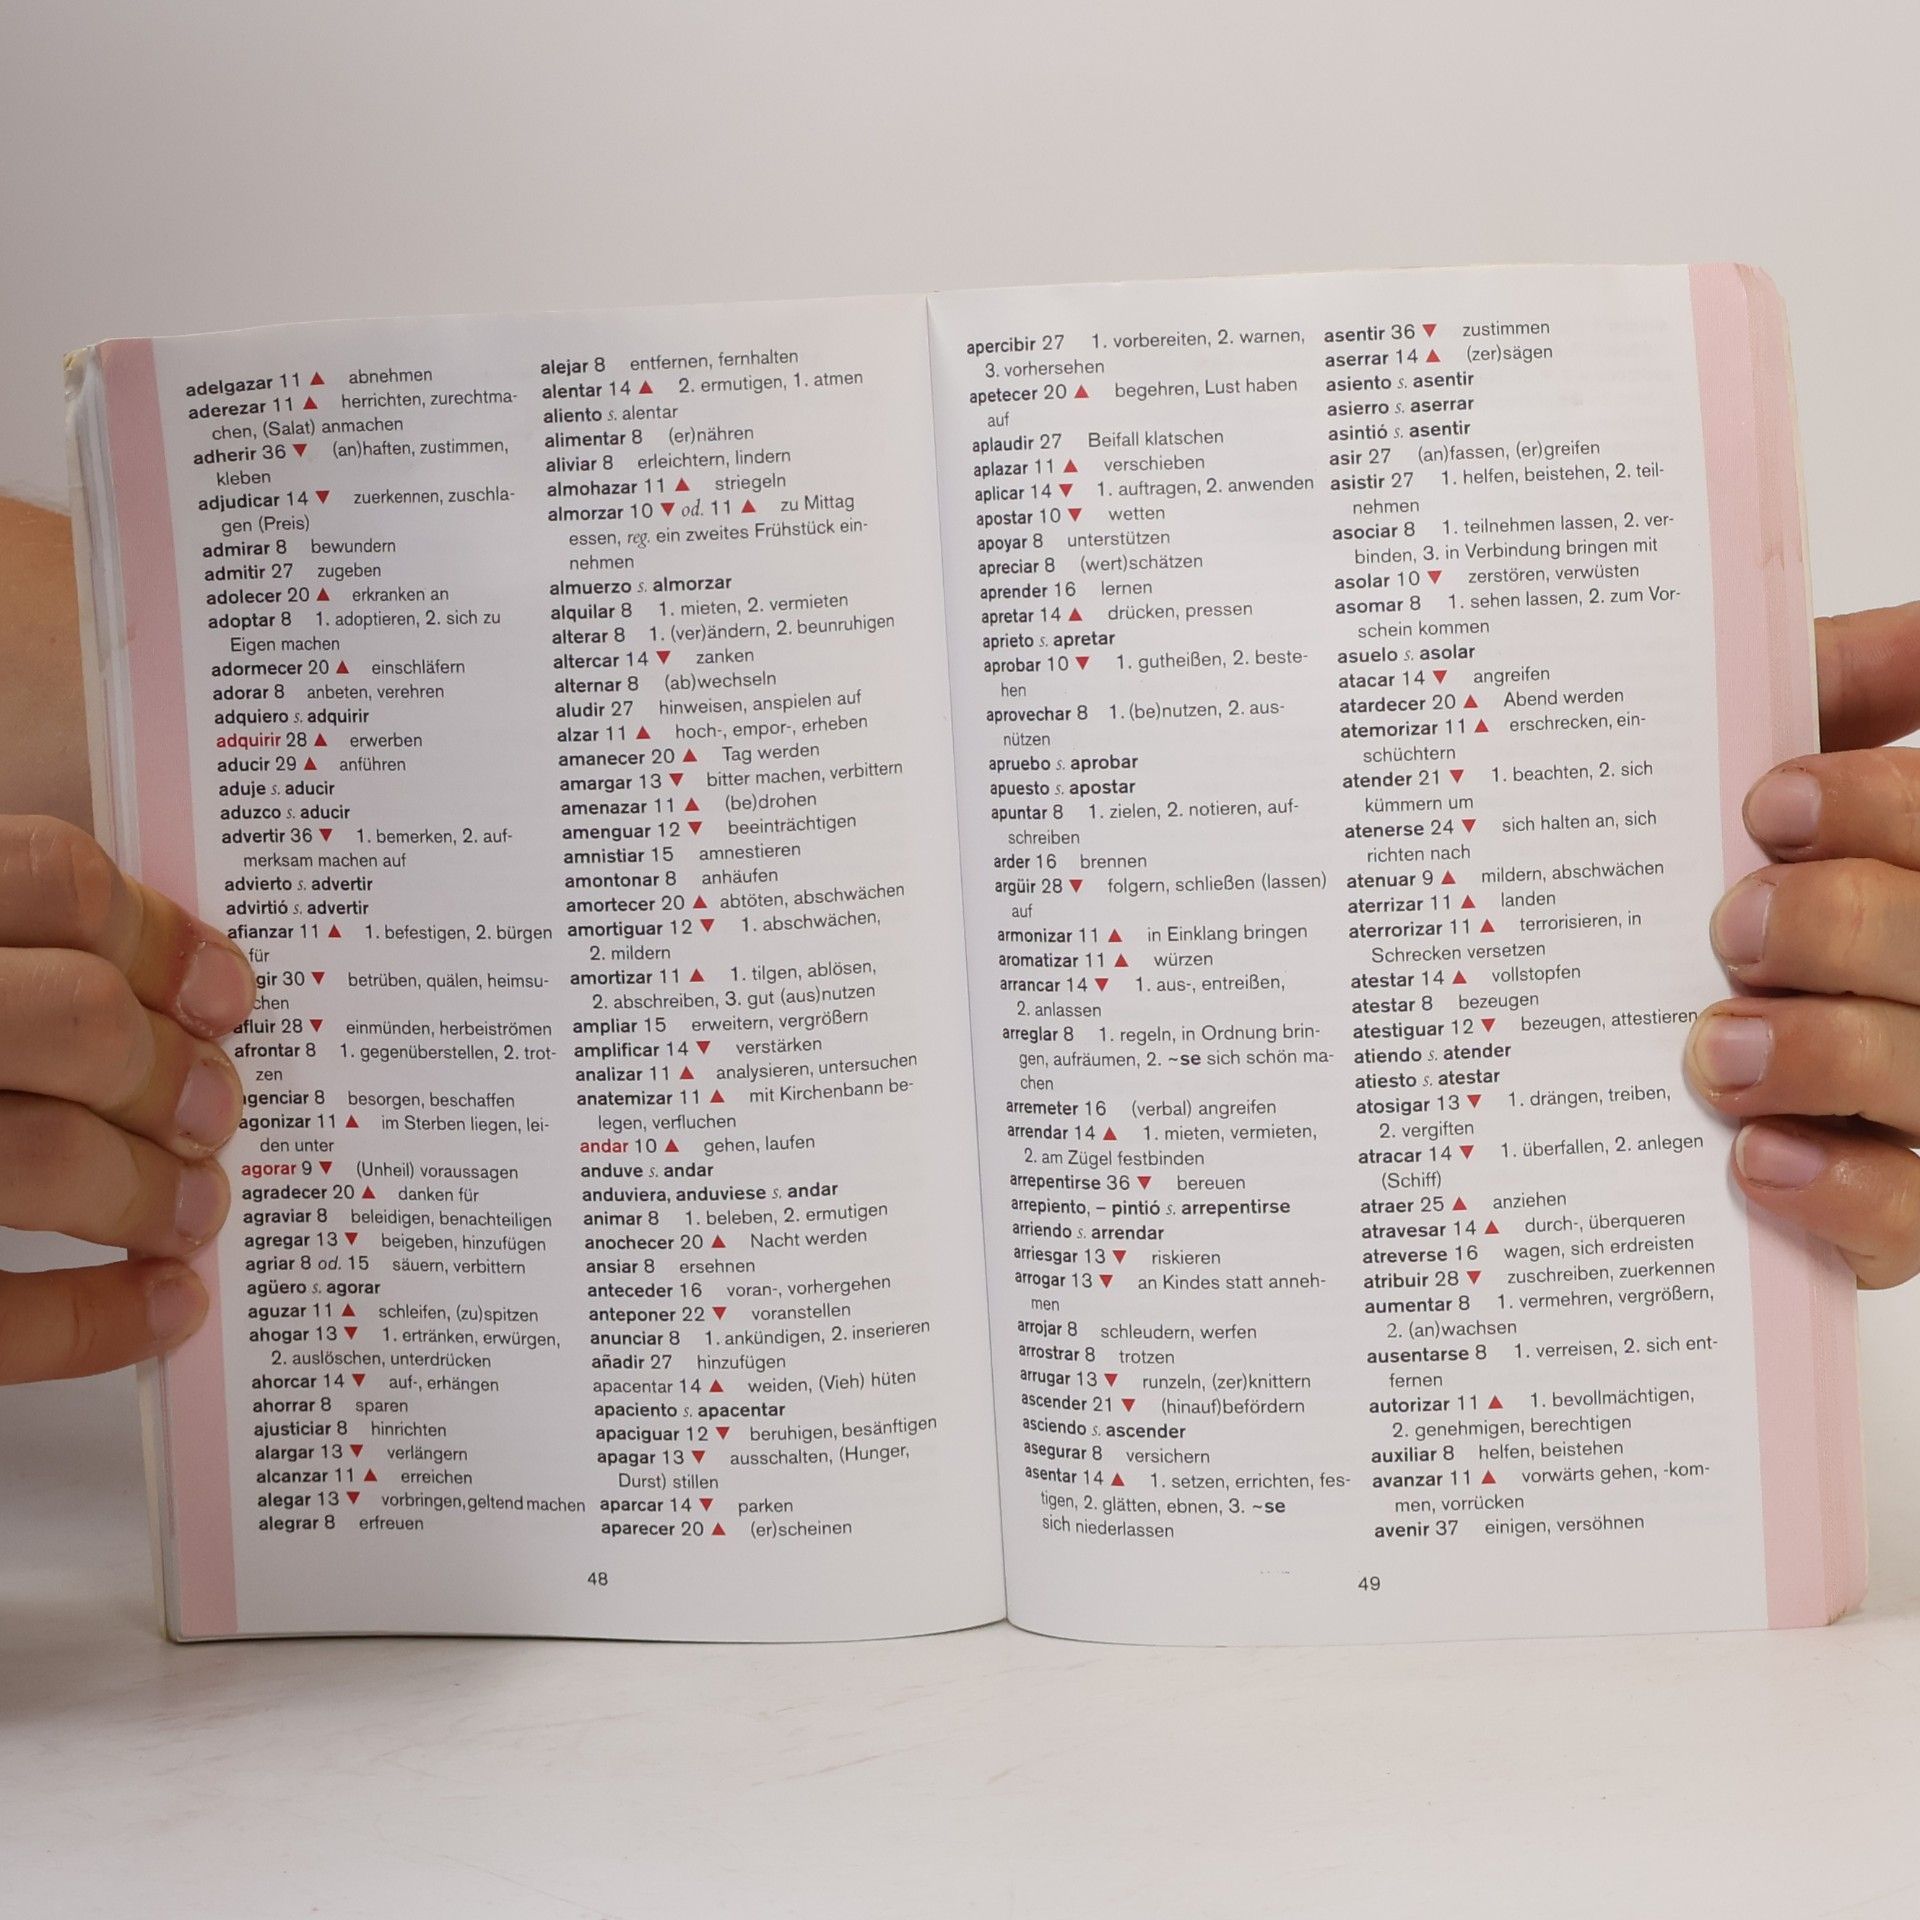 adelgazar 11 ▲ abnehmen
aderezar 11 ▲ herrichten, zurechtma-
chen, (Salat) anmachen
adherir 36 ▼ (an)haften, zustimmen,
kleben
adjudicar 14 ▼ zuerkennen, zuschla-
gen (Preis)
admirar 8 bewundern
admitir 27 zugeben
adolecer 20 ▲ erkranken an
adoptar 8 1. adoptieren, 2. sich zu
Eigen machen
adormecer 20 ▲ einschläfern
adorar 8 anbeten, verehren
adquiero s. adquirir
adquirir 28 ▲ erwerben
aducir 29 ▲ anführen
aduje s. aducir
aduzco s. aducir
advertir 36 ▼ 1. bemerken, 2. auf-
merksam machen auf
advierto s. advertir
advirtió s. advertir
afianzar 11 ▲ 1. befestigen, 2. bürgen
für
gir 30 ▼ betrüben, quälen, heimsu-
chen
afluir 28 ▼ einmünden, herbeiströmen
afrontar 8 1. gegenüberstellen, 2. trot-
zen
agenciar 8 besorgen, beschaffen
agonizar 11 ▲ im Sterben liegen, lei-
den unter
agorar 9 ▼ (Unheil) voraussagen
agradecer 20 ▲ danken für
agraviar 8 beleidigen, benachteiligen
agregar 13 ▼ beigeben, hinzufügen
agriar 8 od. 15 säuern, verbittern
agüero s. agorar
aguzar 11 ▲ schleifen, (zu)spitzen
ahogar 13 ▼ 1. ertränken, erwürgen,
2. auslöschen, unterdrücken
ahorcar 14 ▼ auf-, erhängen
ahorrar 8 sparen
ajusticiar 8 hinrichten
alargar 13 ▼ verlängern
alcanzar 11 ▲ erreichen
alegar 13 ▼ vorbringen, geltend machen
alegrar 8 erfreuen
alejar 8 entfernen, fernhalten
alentar 14 ▲ 2. ermutigen, 1. atmen
aliento s. alentar
alimentar 8 (er)nähren
aliviar 8 erleichtern, lindern
almohazar 11 ▲ striegeln
almorzar 10 ▼ od. 11 ▲ zu Mittag
essen, reg. ein zweites Frühstück ein-
nehmen
almuerzo s. almorzar
alquilar 8 1. mieten, 2. vermieten
alterar 8 1. (ver)ändern, 2. beunruhigen
altercar 14 ▼ zanken
alternar 8 (ab)wechseln
aludir 27 hinweisen, anspielen auf
alzar 11 ▲ hoch-, empor-, erheben
amanecer 20 ▲ Tag werden
amargar 13 ▼ bitter machen, verbittern
amenazar 11 ▲ (be)drohen
amenguar 12 ▼ beeinträchtigen
amnistiar 15 amnestieren
amontonar 8 anhäufen
amortecer 20 ▲ abtöten, abschwächen
amortiguar 12 ▼ 1. abschwächen,
2. mildern
amortizar 11 ▲ 1. tilgen, ablösen,
2. abschreiben, 3. gut (aus)nutzen
ampliar 15 erweitern, vergrößern
amplificar 14 ▼ verstärken
analizar 11 ▲ analysieren, untersuchen
anatemizar 11 ▲ mit Kirchenbann be-
legen, verfluchen
andar 10 ▲ gehen, laufen
anduve s. andar
anduviera, anduviese s. andar
animar 8 1. beleben, 2. ermutigen
anochecer 20 ▲ Nacht werden
ansiar 8 ersehnen
anteceder 16 voran-, vorhergehen
anteponer 22 ▼ voranstellen
anunciar 8 1. ankündigen, 2. inserieren
añadir 27 hinzufügen
apacentar 14 ▲ weiden, (Vieh) hüten
apaciento s. apacentar
apaciguar 12 ▼ beruhigen, besänftigen
apagar 13 ▼ ausschalten, (Hunger,
Durst) stillen
aparcar 14 ▼ parken
aparecer 20 ▲ (er)scheinen
48
apercibir 27 1. vorbereiten, 2. warnen,
3. vorhersehen
apetecer 20 ▲ begehren, Lust haben
auf
aplaudir 27 Beifall klatschen
aplazar 11 ▲ verschieben
aplicar 14 ▼ 1. auftragen, 2. anwenden
apostar 10 ▼ wetten
apoyar 8 unterstützen
apreciar 8 (wert)schätzen
aprender 16 lernen
apretar 14 ▲ drücken, pressen
aprieto s. apretar
aprobar 10 ▼ 1. gutheißen, 2. beste-
hen
aprovechar 8 1. (be)nutzen, 2. aus-
nützen
apruebo s. aprobar
apuesto s. apostar
apuntar 8 1. zielen, 2. notieren, auf-
schreiben
arder 16 brennen
argüir 28 ▼ folgern, schließen (lassen)
auf
armonizar 11 ▲ in Einklang bringen
aromatizar 11 ▲ würzen
arrancar 14 ▼ 1. aus-, entreißen,
2. anlassen
arreglar 8 1. regeln, in Ordnung brin-
gen, aufräumen, 2. ~se sich schön ma-
chen
arremeter 16 (verbal) angreifen
arrendar 14 ▲ 1. mieten, vermieten,
2. am Zügel festbinden
arrepentirse 36 ▼ bereuen
arrepiento, – pintió s. arrepentirse
arriendo s. arrendar
arriesgar 13 ▼ riskieren
arrogar 13 ▼ an Kindes statt anneh-
men
arrojar 8 schleudern, werfen
arrostrar 8 trotzen
arrugar 13 ▼ runzeln, (zer)knittern
ascender 21 ▼ (hinauf)befördern
asciendo s. ascender
asegurar 8 versichern
asentar 14 ▲ 1. setzen, errichten, fes-
tigen, 2. glätten, ebnen, 3. ~se
sich niederlassen
asentir 36 ▼ zustimmen
aserrar 14 ▲ (zer)sägen
asiento s. asentir
asierro s. aserrar
asintió s. asentir
asir 27 (an)fassen, (er)greifen
asistir 27 1. helfen, beistehen, 2. teil-
nehmen
asociar 8 1. teilnehmen lassen, 2. ver-
binden, 3. in Verbindung bringen mit
asolar 10 ▼ zerstören, verwüsten
asomar 8 1. sehen lassen, 2. zum Vor-
schein kommen
asuelo s. asolar
atacar 14 ▼ angreifen
atardecer 20 ▲ Abend werden
atemorizar 11 ▲ erschrecken, ein-
schüchtern
atender 21 ▼ 1. beachten, 2. sich
kümmern um
atenerse 24 ▼ sich halten an, sich
richten nach
atenuar 9 ▲ mildern, abschwächen
aterrizar 11 ▲ landen
aterrorizar 11 ▲ terrorisieren, in
Schrecken versetzen
atestar 14 ▲ vollstopfen
atestar 8 bezeugen
atestiguar 12 ▼ bezeugen, attestieren
atiendo s. atender
atiesto s. atestar
atosigar 13 ▼ 1. drängen, treiben,
2. vergiften
atracar 14 ▼ 1. überfallen, 2. anlegen
(Schiff)
atraer 25 ▲ anziehen
atravesar 14 ▲ durch-, überqueren
atreverse 16 wagen, sich erdreisten
atribuir 28 ▼ zuschreiben, zuerkennen
aumentar 8 1. vermehren, vergrößern,
2. (an)wachsen
ausentarse 8 1. verreisen, 2. sich ent-
fernen
autorizar 11 ▲ 1. bevollmächtigen,
2. genehmigen, berechtigen
auxiliar 8 helfen, beistehen
avanzar 11 ▲ vorwärts gehen, -kom-
men, vorrücken
avenir 37 einigen, versöhnen
49